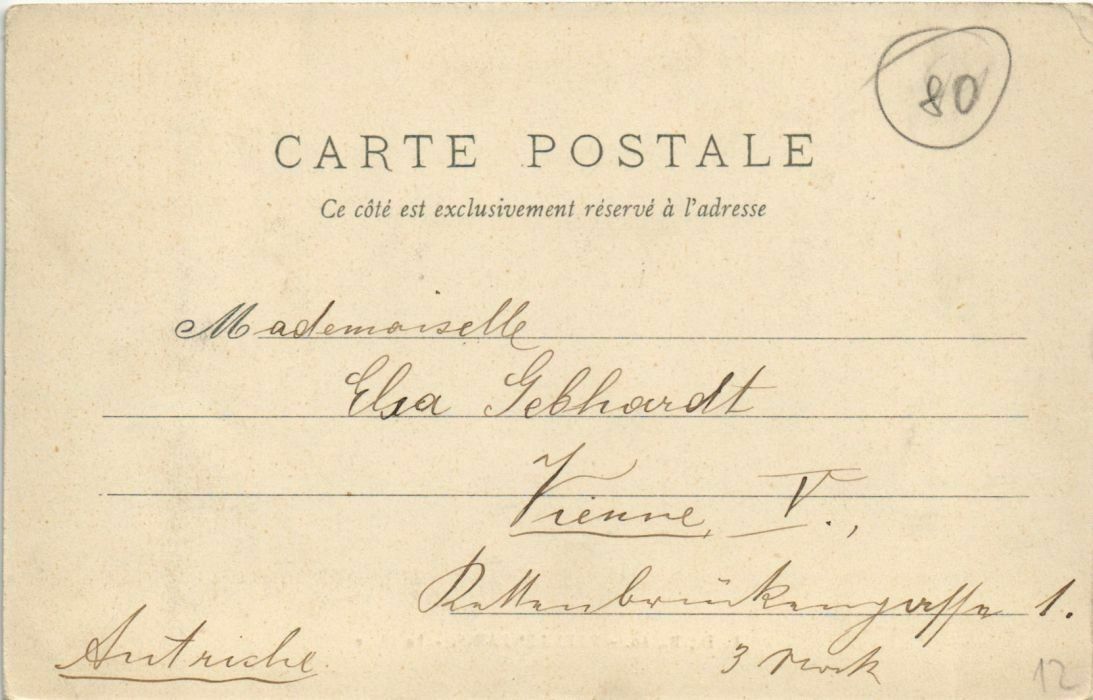 80
CARTE POSTALE
Ce côté est exclusivement réservé à l'adresse
Mademoiselle
Elsa Gebhardt
Vienne, V.,
Kettenbrückengasse 1.
3 Stock
Autriche
12